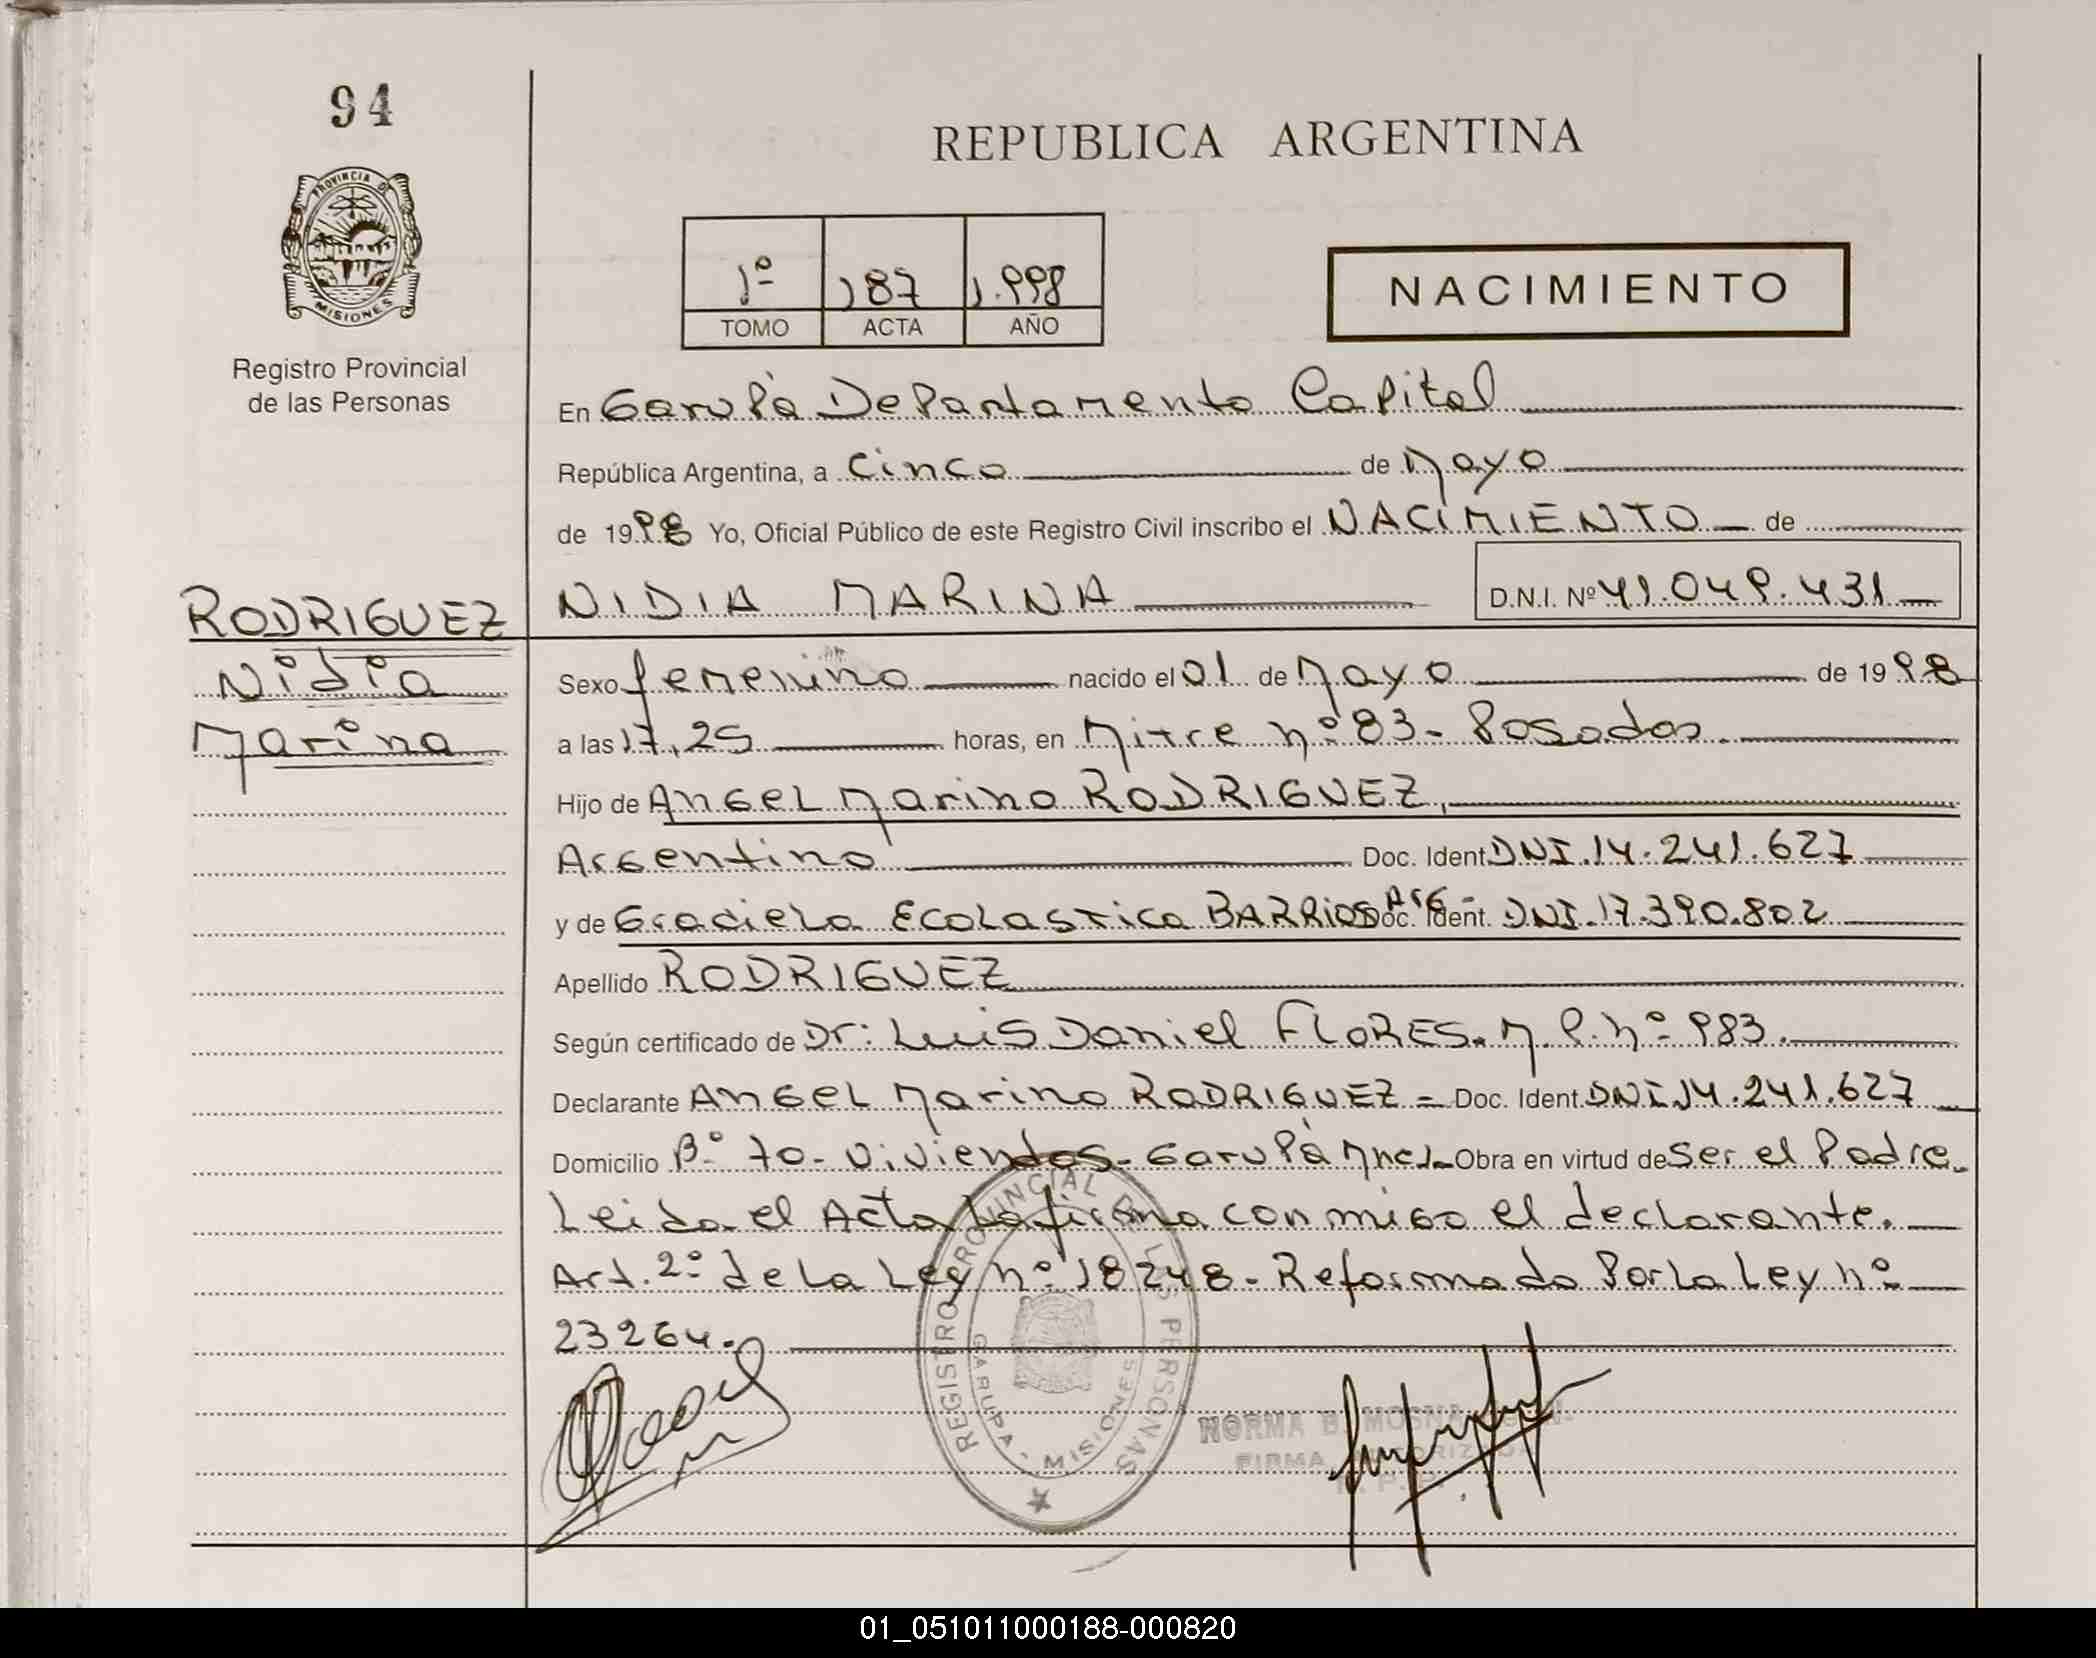 94
PROVINCIA DE
MISIONES
Registro Provincial
de las Personas
RODRIGUEZ
Nidia
Marina
REPUBLICA ARGENTINA
1º 187 1.998
TOMO ACTA AÑO
NACIMIENTO
En Garupá Departamento Capital
República Argentina, a Cinco de Mayo
de 1998 Yo, Oficial Público de este Registro Civil inscribo el NACIMIENTO de
NIDIA MARINA D.N.I. Nº 41.049.431
Sexo femenino nacido el 01 de Mayo de 1998
a las 17,25 horas, en Mitre nº 83- Posadas.
Hijo de Angel Marino RODRIGUEZ,
Argentino Doc. Ident. DNI.14.241.627
y de Graciela Ecolastica BARRIOS Arg- Doc. Ident. DNI.17.390.802
Apellido RODRIGUEZ
Según certificado de Dr: Luis Daniel FLORES. M.P.nº 983.
Declarante Angel Marino RODRIGUEZ = Doc. Ident. DNI.14.241.627
Domicilio Bº 70- Viviendas- Garupá Mnes. Obra en virtud de Ser el Padre.
Leida el Acta La firma conmigo el declarante.
Art. 2º de La Ley nº 18248- Reformado Por La Ley nº
23264.
REGISTRO PROVINCIAL DE LAS PERSONAS
GARUPA - MISIONES
NORMA B.
FIRMA AUTORIZADA
01_051011000188-000820